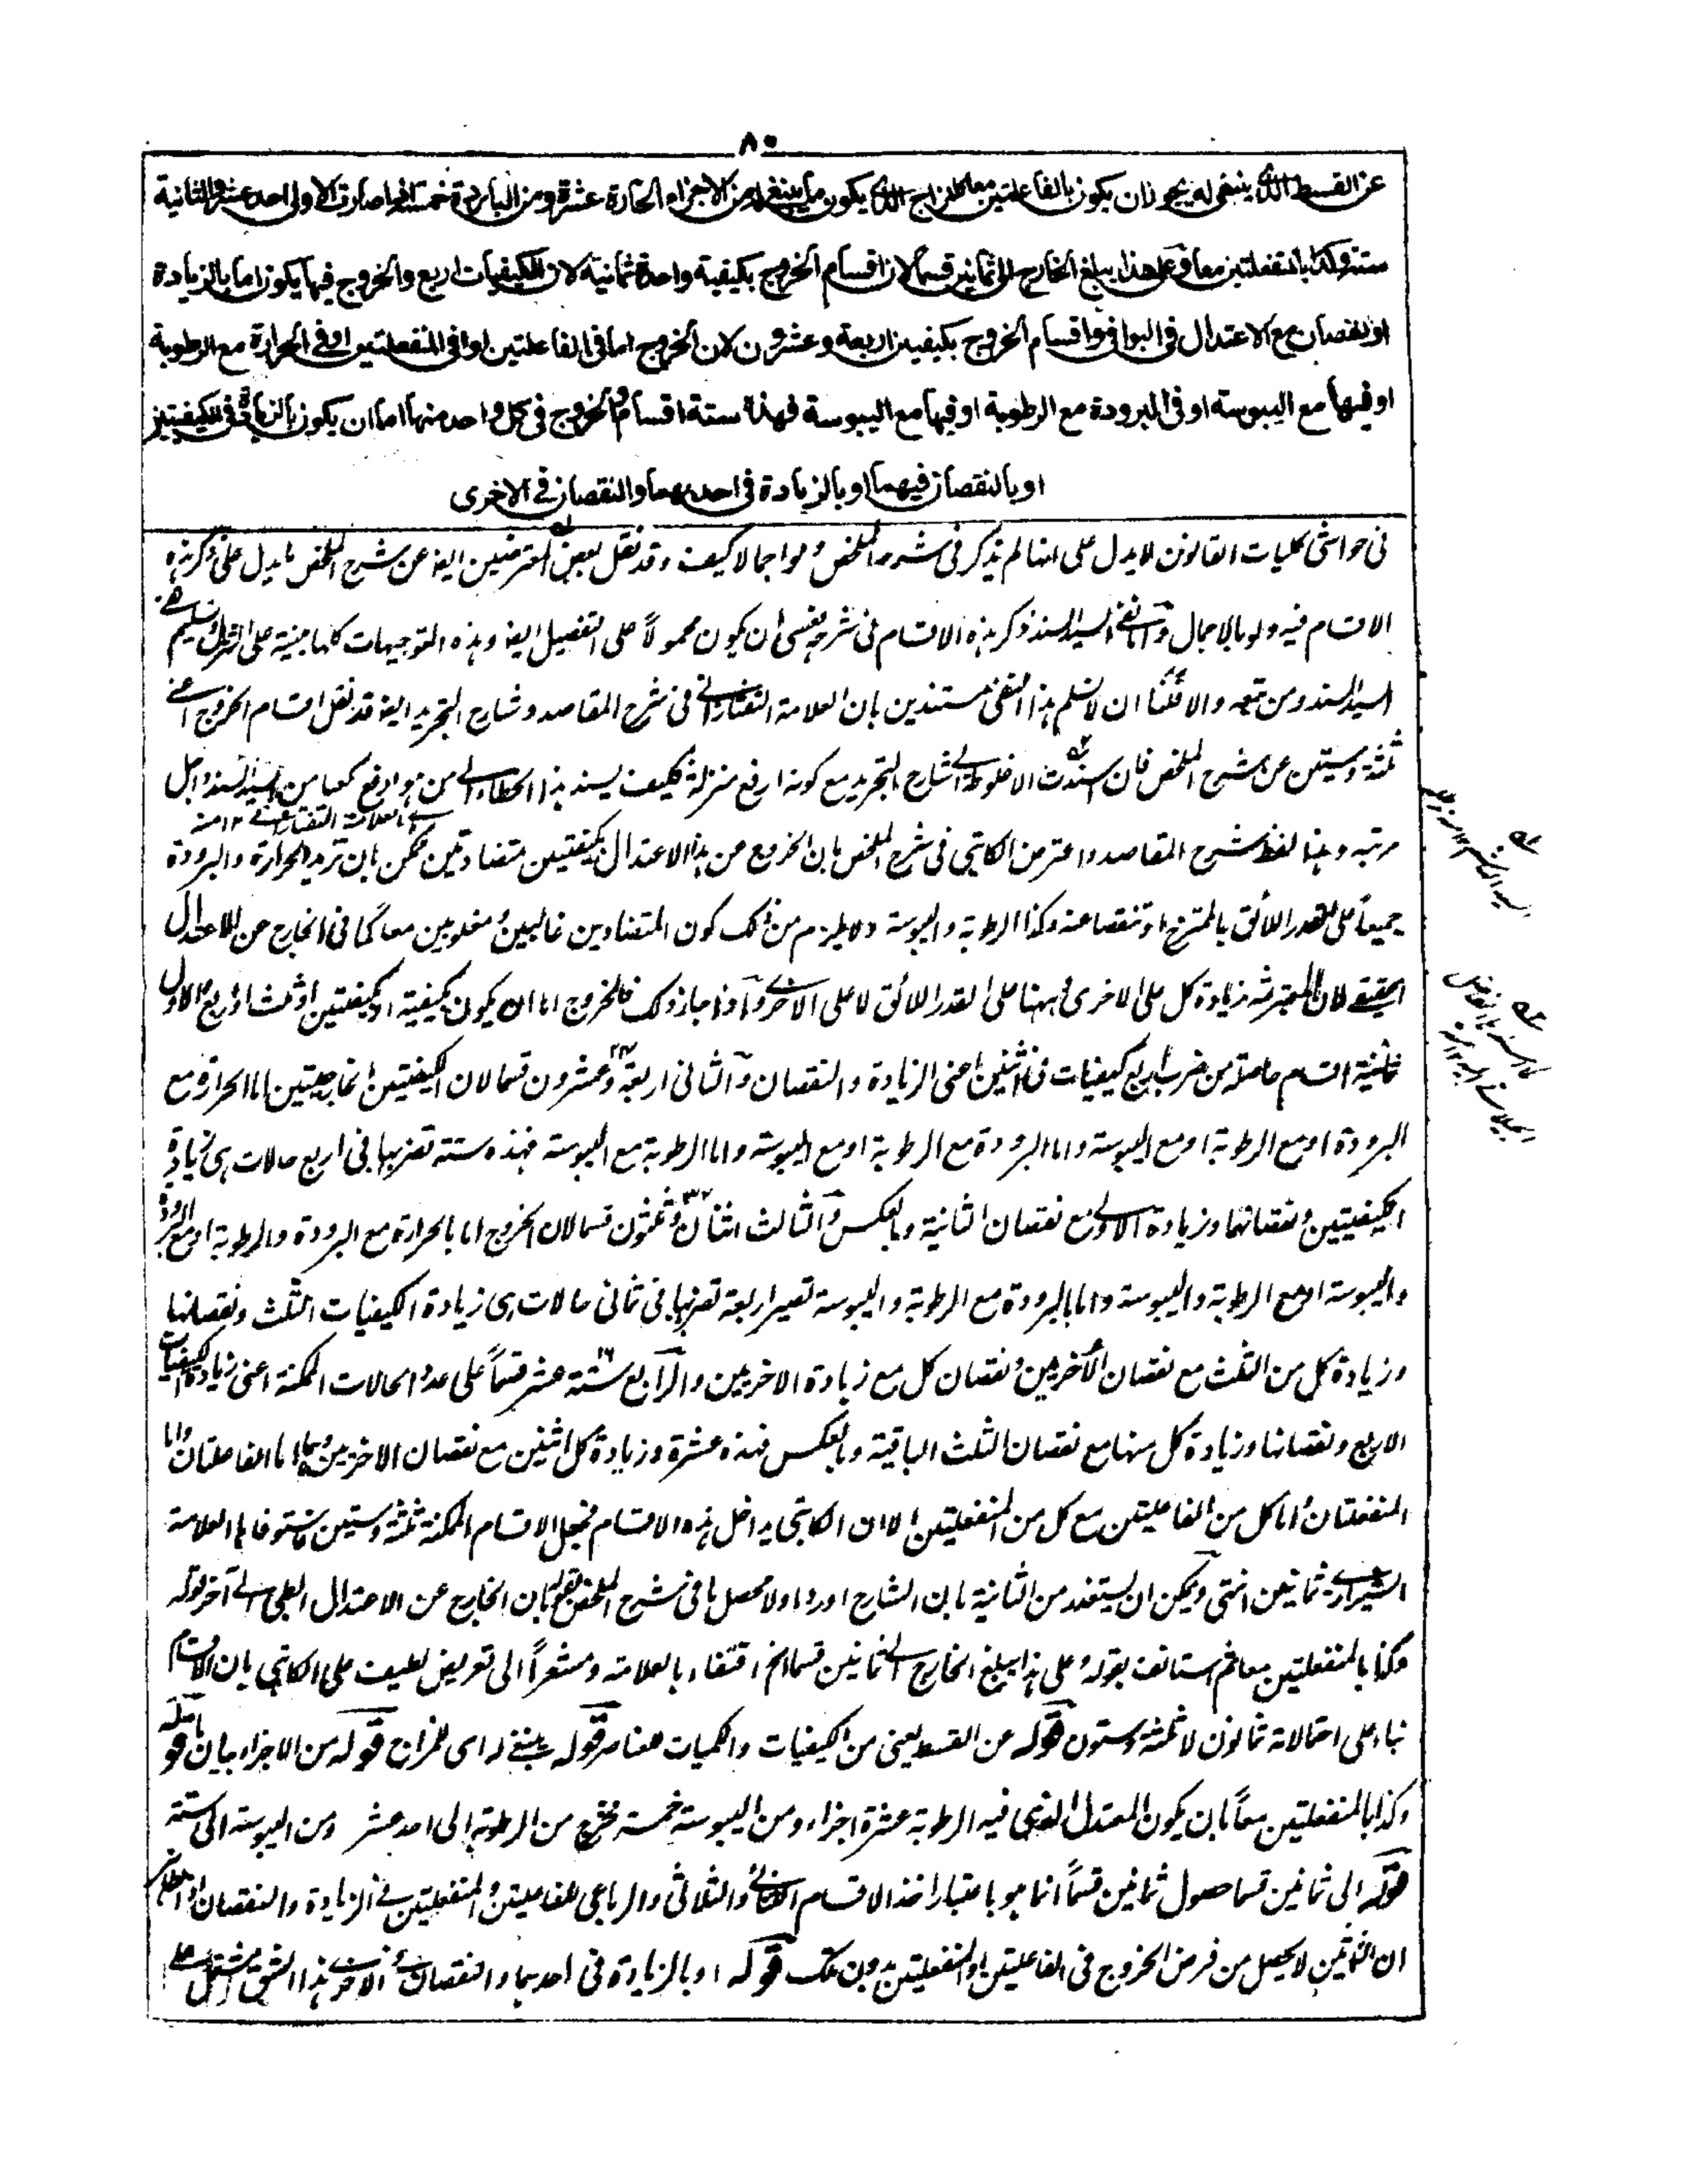 ٨٠
عن القسط الذي ينبغي له يجوز ان يكون بالفاعلتين معا كمزاج الذي يكون ما ينبغي له من الاجزاء الحارة عشرة ومن الباردة خمسة اذا صارت الاولى احد عشر والثانية
ستة وكذا بالمنفعلتين معا وعلى هذا يبلغ الخارج الى ثمانين قسما لان اقسام الخروج بكيفية واحدة ثمانية لان الكيفيات اربع والخروج فيها يكون اما بالزيادة
او النقصان مع الاعتدال في البواقي واقسام الخروج بكيفيتين اربعة وعشرون لان الخروج اما في الفاعلتين او في المنفعلتين او في الحرارة مع الرطوبة
او فيها مع اليبوسة او في البرودة مع الرطوبة او فيها مع اليبوسة فهذا ستة اقسام والخروج في كل واحد منها اما ان يكون بالزيادة في الكيفيتين
او بالنقصان فيهما او بالزيادة في احدىهما والنقصان في الاخرى
في حواشي كليات القانون لا يدل على انها لم يذكر في شرحه الملخص ولو اجمالا كيف وقد نقل بعض المعترضين ايضا عن شرح الملخص ما يدل على ذكر هذه
الاقسام فيه ولو بالاجمال وانما نفى السيد السند ذكر هذه الاقسام في شرحه فعسى ان يكون محمولاً على التفصيل ايضا وهذه التوجيهات كلها مبنية على التنزل وتسليم نفي
السيد السند ومن تبعه والا فلنا ان لا نسلم هذا النفي مستندين بان العلامة التفتازاني في شرح المقاصد وشارح التجريد ايضا قد نقل اقسام الخروج اعني
ثلثة وستين عن شرح الملخص فان اسندت الاغلوطة الى شارح التجريد مع كونه ارفع منزلة فكيف يسند هذا الخطاء الى من هو ارفع كعبا من السيد السند واجل
اي العلامة التفتازاني ١٢ منه
مرتبه وهذا لفظ شرح المقاصد واعترض الكاتبي في شرح الملخص بان الخروج عن هذا الاعتدال بكيفيتين متضادتين ممكن بان تزيد الحرارة والبرودة
جميعاً على القدر اللائق بالممتزج او تنقصا عنه وكذا الرطوبة واليبوسة ولا يلزم من ذلك كون المتضادين غالبين ومغلوبين معا كما في الخارج عن الاعتدال
الحقيقي لان المعتبر ثمه زيادة كل على الاخرى وههنا على القدر اللائق لا على الاخرى واذا جاز ذلك فالخروج اما ان يكون بكيفية او كيفيتين او ثلث او اربع فالاول
ثمانية اقسام حاصلة من ضرب اربع كيفيات في اثنين اعني الزيادة والنقصان والثاني اربعة وعشرون قسما لان الكيفيتين الخارجيتين اما الحرارة مع
البرودة او مع الرطوبة او مع اليبوسة واما البرودة مع الرطوبة او مع اليبوسة واما الرطوبة مع اليبوسة فهذه ستة تضربها في اربع حالات هي زيادة
الكيفيتين ونقصانهما وزيادة الاولى مع نقصان الثانية وبالعكس والثالث اثنان وثلثون قسما لان الخروج اما بالحرارة مع البرودة والرطوبة او مع البرودة
واليبوسة او مع الرطوبة واليبوسة واما بالبرودة مع الرطوبة واليبوسة تصير اربعة تضربها في ثماني حالات هي زيادة الكيفيات الثلث ونقصانها
وزيادة كل من الثلث مع نقصان الاخريين ونقصان كل مع زيادة الاخريين والرابع ستة عشر قسماً على عدد الحالات الممكنة اعني زيادة الكيفيات
الاربع ونقصانها وزيادة كل منها مع نقصان الثلث الباقية وبالعكس فهذه عشرة وزيادة كل اثنين مع نقصان الاخريين وهما اما الفاعلتان واما
المنفعلتان واما كل من الفاعليتين مع كل من المنفعليتين الا ان الكاتبي يداخل هذه الاقسام فجعل الاقسام الممكنة ثلثة وستين فاستوفاها العلامة
الشيرازي ثمانين انتهى ويمكن ان يستفد من الثانية بان الشارح اورد اولا محصل ما في شرح الملخص بقوله بان الخارج عن الاعتدال الطبي الى آخر قوله
وكذا بالمنفعلتين معا ثم استانف بقوله وعلى هذا يبلغ الخارج الى ثمانين قسما الخ اقتفاء بالعلامة ومشعراً الى تعريض لطيف على الكاتبي بان الاقسام
بناء على احتمالاته ثمانون لا ثلثة وستون قوله عن القسط يعني من الكيفيات والكميات للعناصر قوله ينبغي له اى للمزاج قوله من الاجزاء بيان ما قوله
وكذا بالمنفعلتين معاً بان يكون المعتدل الذي فيه الرطوبة عشرة اجزاء ومن اليبوسة خمسة فخرج من الرطوبة الى احد عشر ومن اليبوسة الى ستة
قوله الى ثمانين قسما حصول ثمانين قسماً انما هو باعتبار اخذ الاقسام الثنائي والثلاثي والرباعي للفاعليتين والمنفعليتين في الزيادة والنقصان
ان الثمانين لا يحصل من فرض الخروج في الفاعليتين او المنفعليتين بدون تلك قوله او بالزيادة في احدىهما والنقصان في الاخرى هذا الشق مشتمل على